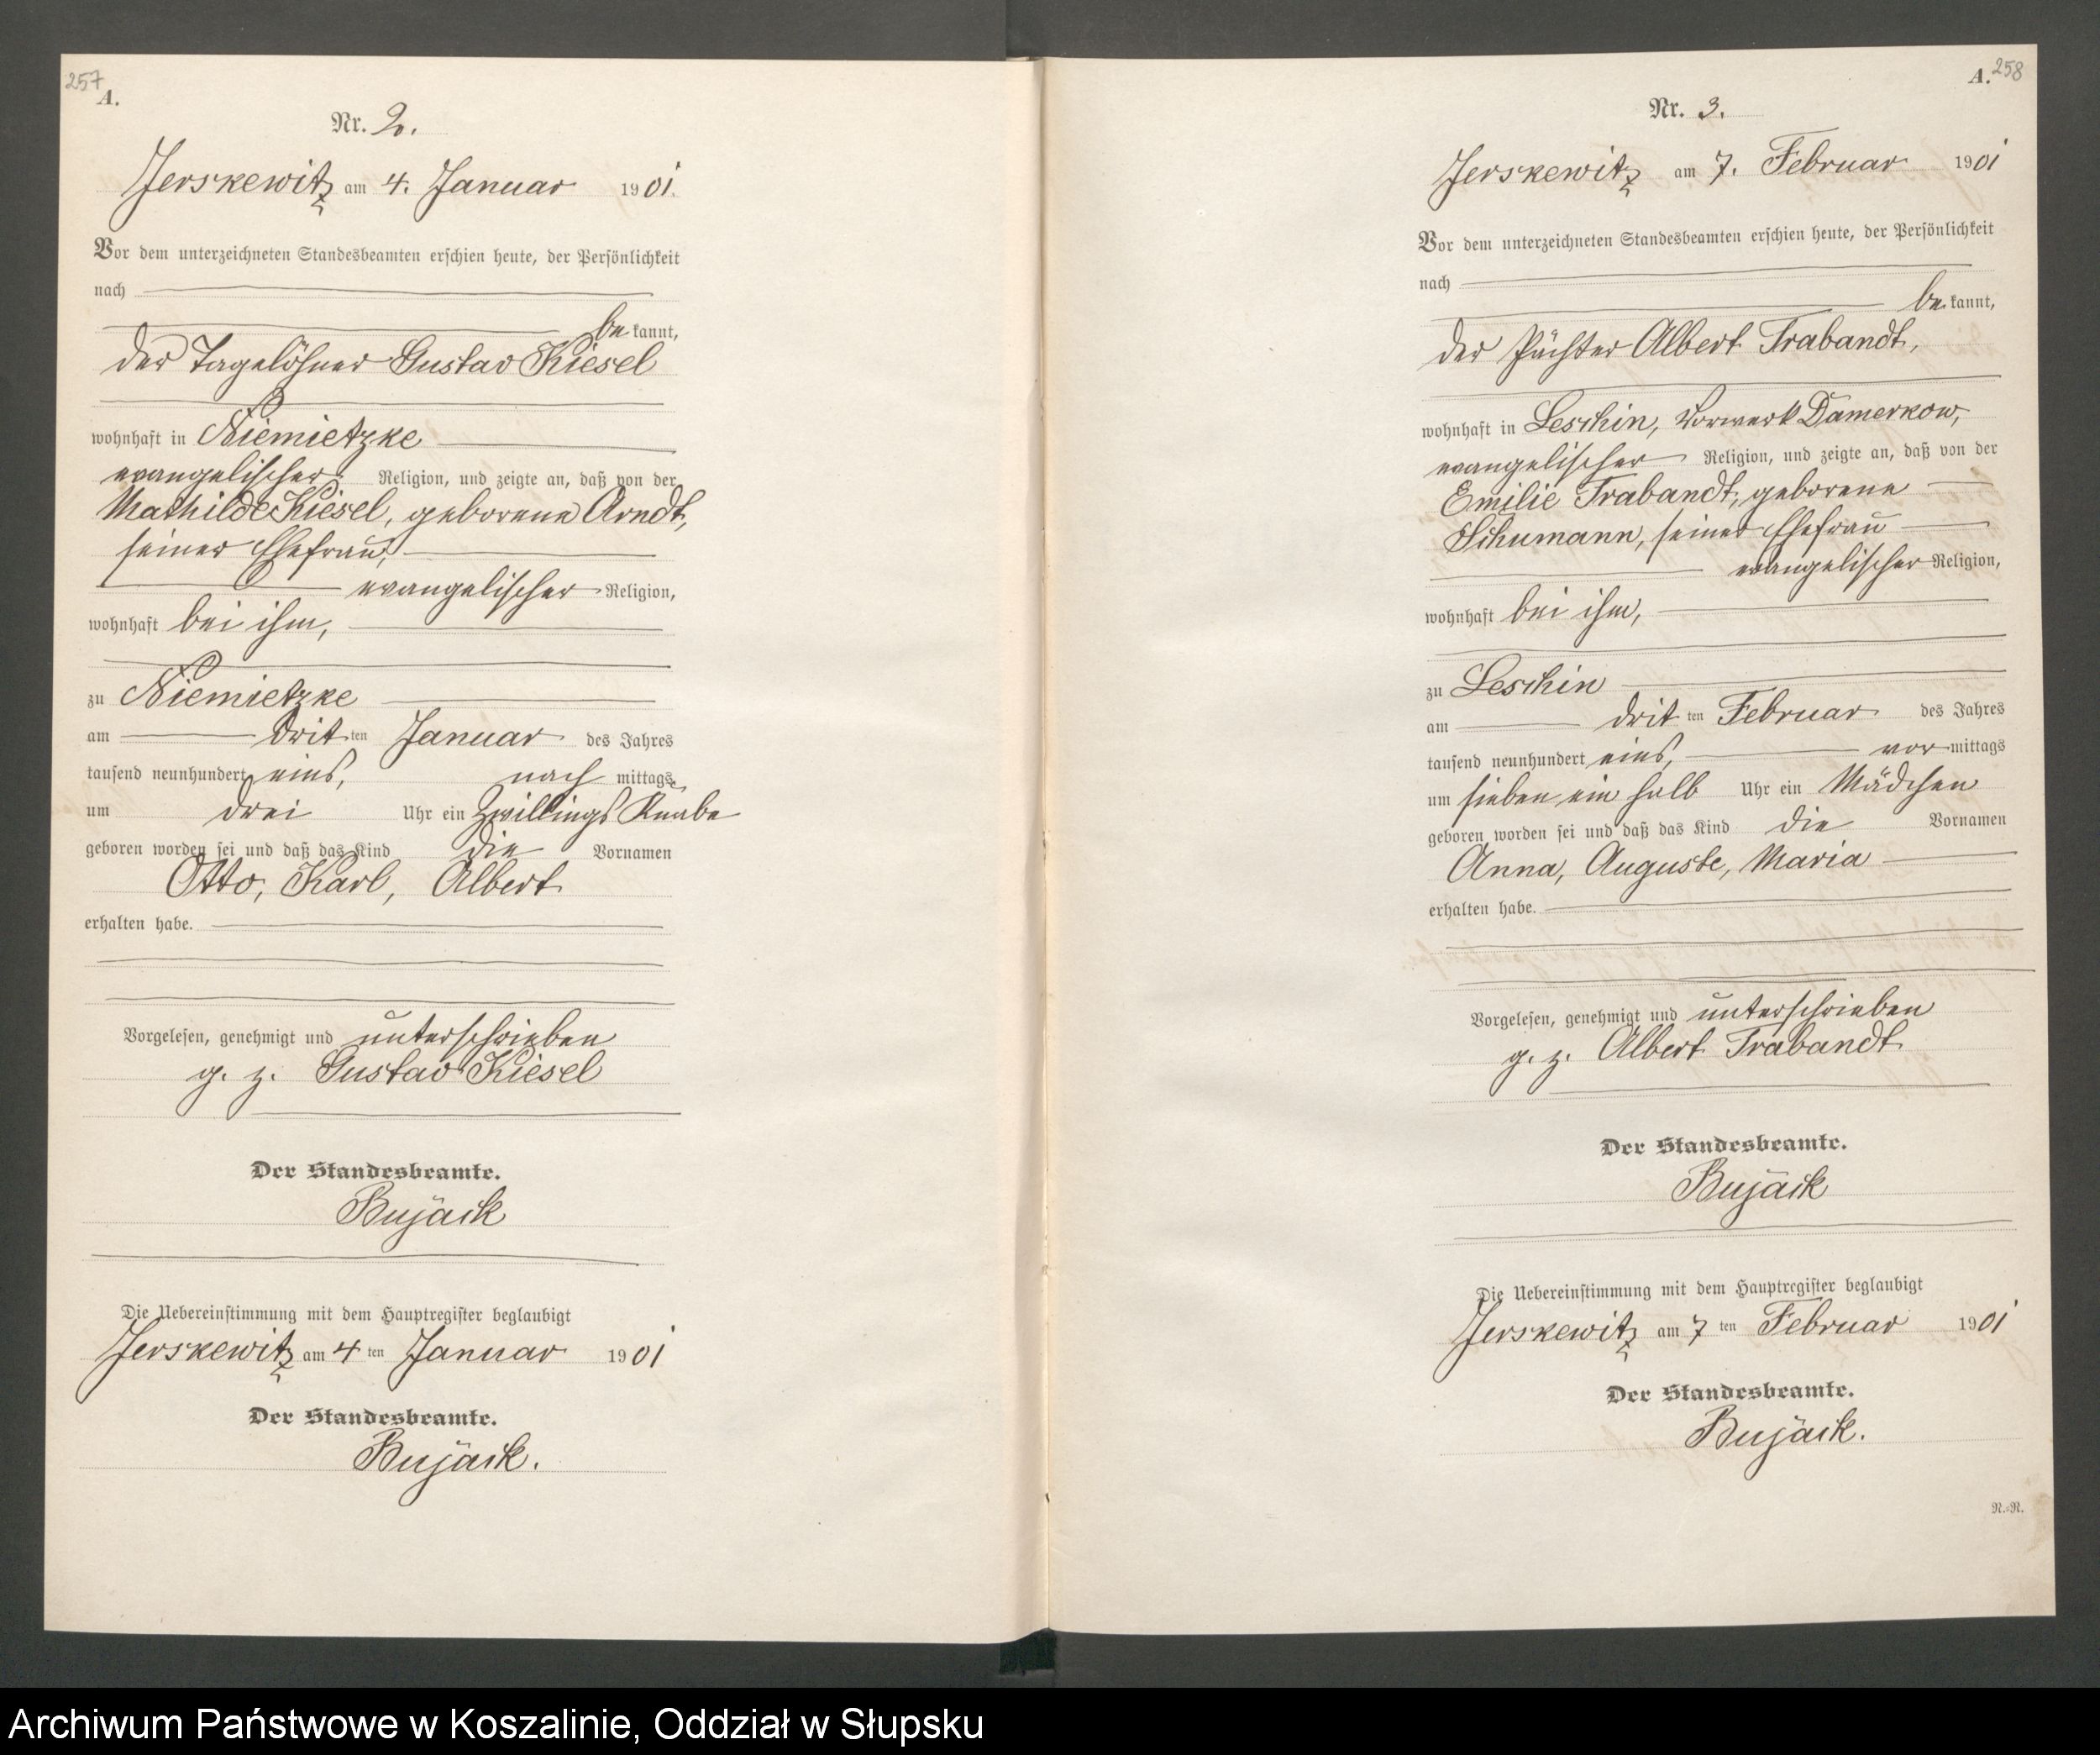 257
A.
Nr. 2.
Jerskewitz am 4. Januar 1901.
Vor dem unterzeichneten Standesbeamten erschien heute, der Persönlichkeit
nach
bekannt,
der Tagelöhner Gustav Kiesel
wohnhaft in Niemietzke
evangelischer Religion, und zeigte an, daß von der
Mathilde Kiesel, geborene Arndt,
seiner Ehefrau,
evangelischer Religion,
wohnhaft bei ihm,
zu Niemietzke
am dritten Januar des Jahres
tausend neunhundert eins, nachmittags
um drei Uhr ein Zwillings Knabe
geboren worden sei und daß das Kind die Vornamen
Otto, Karl, Albert
erhalten habe.
Vorgelesen, genehmigt und unterschrieben
g. z. Gustav Kiesel
Der Standesbeamte.
Bujack
Die Uebereinstimmung mit dem Hauptregister beglaubigt
Jerskewitz am 4ten Januar 1901
Der Standesbeamte.
Bujack.
A. 258
Nr. 3.
Jerskewitz am 7. Februar 1901
Vor dem unterzeichneten Standesbeamten erschien heute, der Persönlichkeit
nach
bekannt,
der Pächter Albert Trabandt,
wohnhaft in Leschin, Vorwerk Damerkow,
evangelischer Religion, und zeigte an, daß von der
Emilie Trabandt, geborene
Schumann, seiner Ehefrau
evangelischer Religion,
wohnhaft bei ihm,
zu Leschin
am dritten Februar des Jahres
tausend neunhundert eins, vormittags
um sieben ein halb Uhr ein Mädchen
geboren worden sei und daß das Kind die Vornamen
Anna, Auguste, Maria
erhalten habe.
Vorgelesen, genehmigt und unterschrieben
g. z. Albert Trabandt
Der Standesbeamte.
Bujack
Die Uebereinstimmung mit dem Hauptregister beglaubigt
Jerskewitz am 7ten Februar 1901
Der Standesbeamte.
Bujack.
N.=N.
Archiwum Państwowe w Koszalinie, Oddział w Słupsku